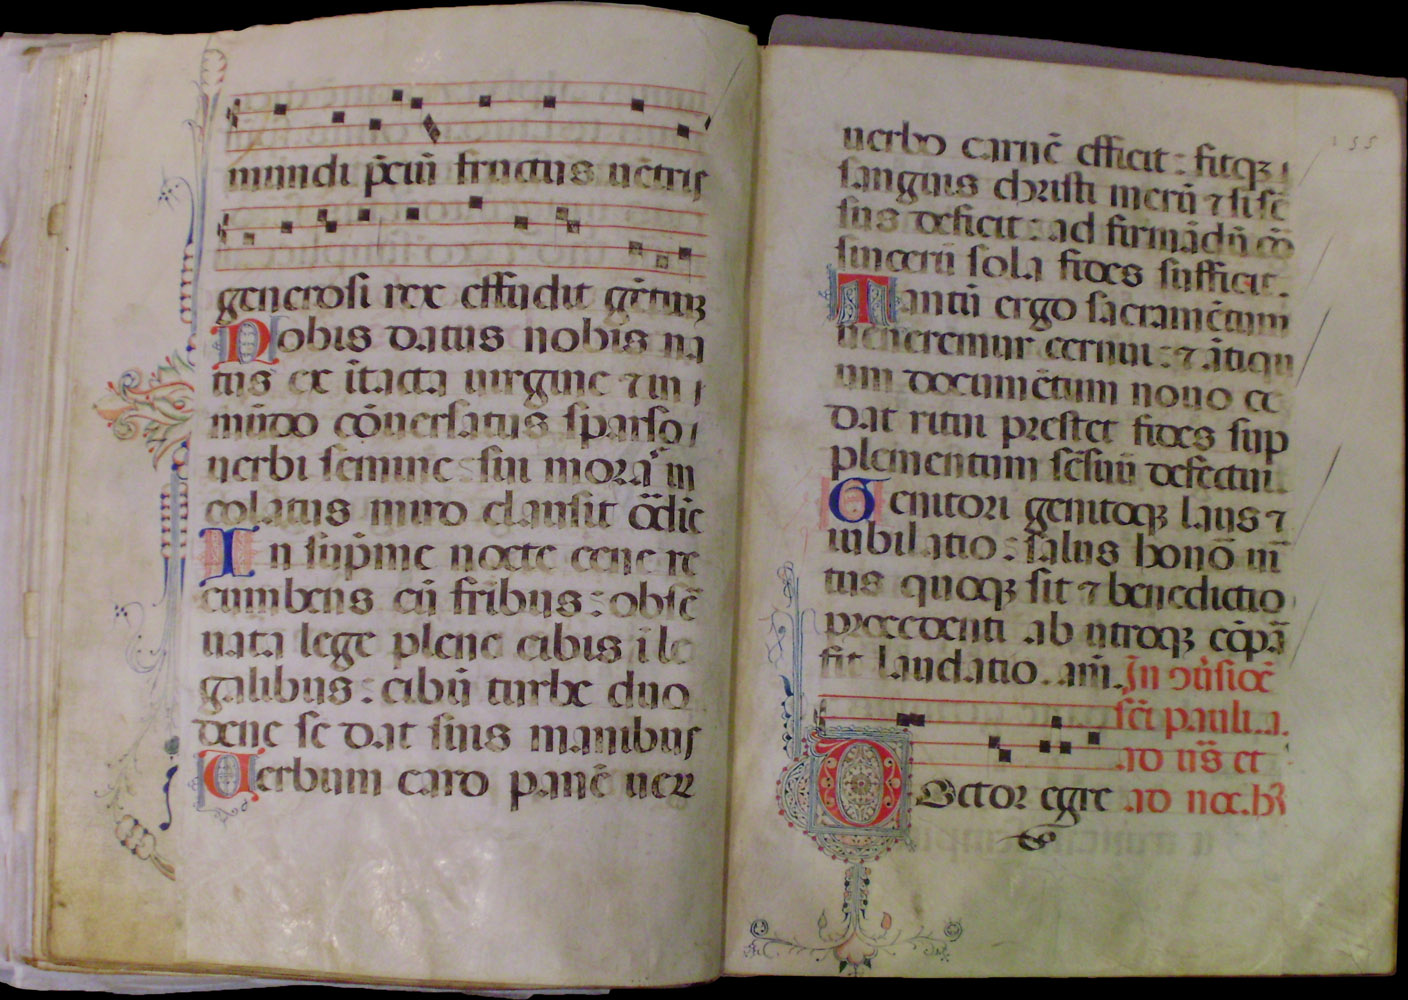 mundi p̄ciū fructus uētris
generosi rex effudit gētiuꝫ
Nobis datus nobis na
tus ex ītacta uirgine ⁊ in
mūdo cōuersatus sparso
uerbi semine : sui morā in
colatus miro clausit ōdīe
In sup̄me nocte cene re
cumbens cū frībus : obsē
uata lege plene cibis ī le
galibus : cibū turbe duo
dene se dat suis manibus
Uerbum caro panē uerꝝ
uerbo carnē efficit : fitqꝫ
sanguis christi merū ⁊ si sē
sus deficit : ad firmādū cō
sincerū sola fides sufficit.
Tantū ergo sacramētum
ueneremur cernui : ⁊ ātiqu
um documētum nouo ce
dat ritui prestet fides sup
plementum sēsuū defectui.
Genitori genitoqꝫ laus ⁊
iubilatio : salus honō uī
tus quoqꝫ sit ⁊ benedictio
procedenti ab utroqꝫ cōpā
sit laudatio. am̄. In ↄūsiōē
scī pauli. a.
ad us̄ et
Doctor egre ad noc. h̄
155